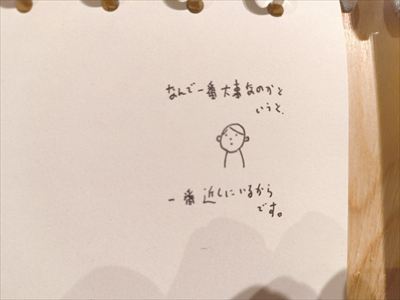 なんで一番大事なのかと
いうと、
一番近しにいるから
です。